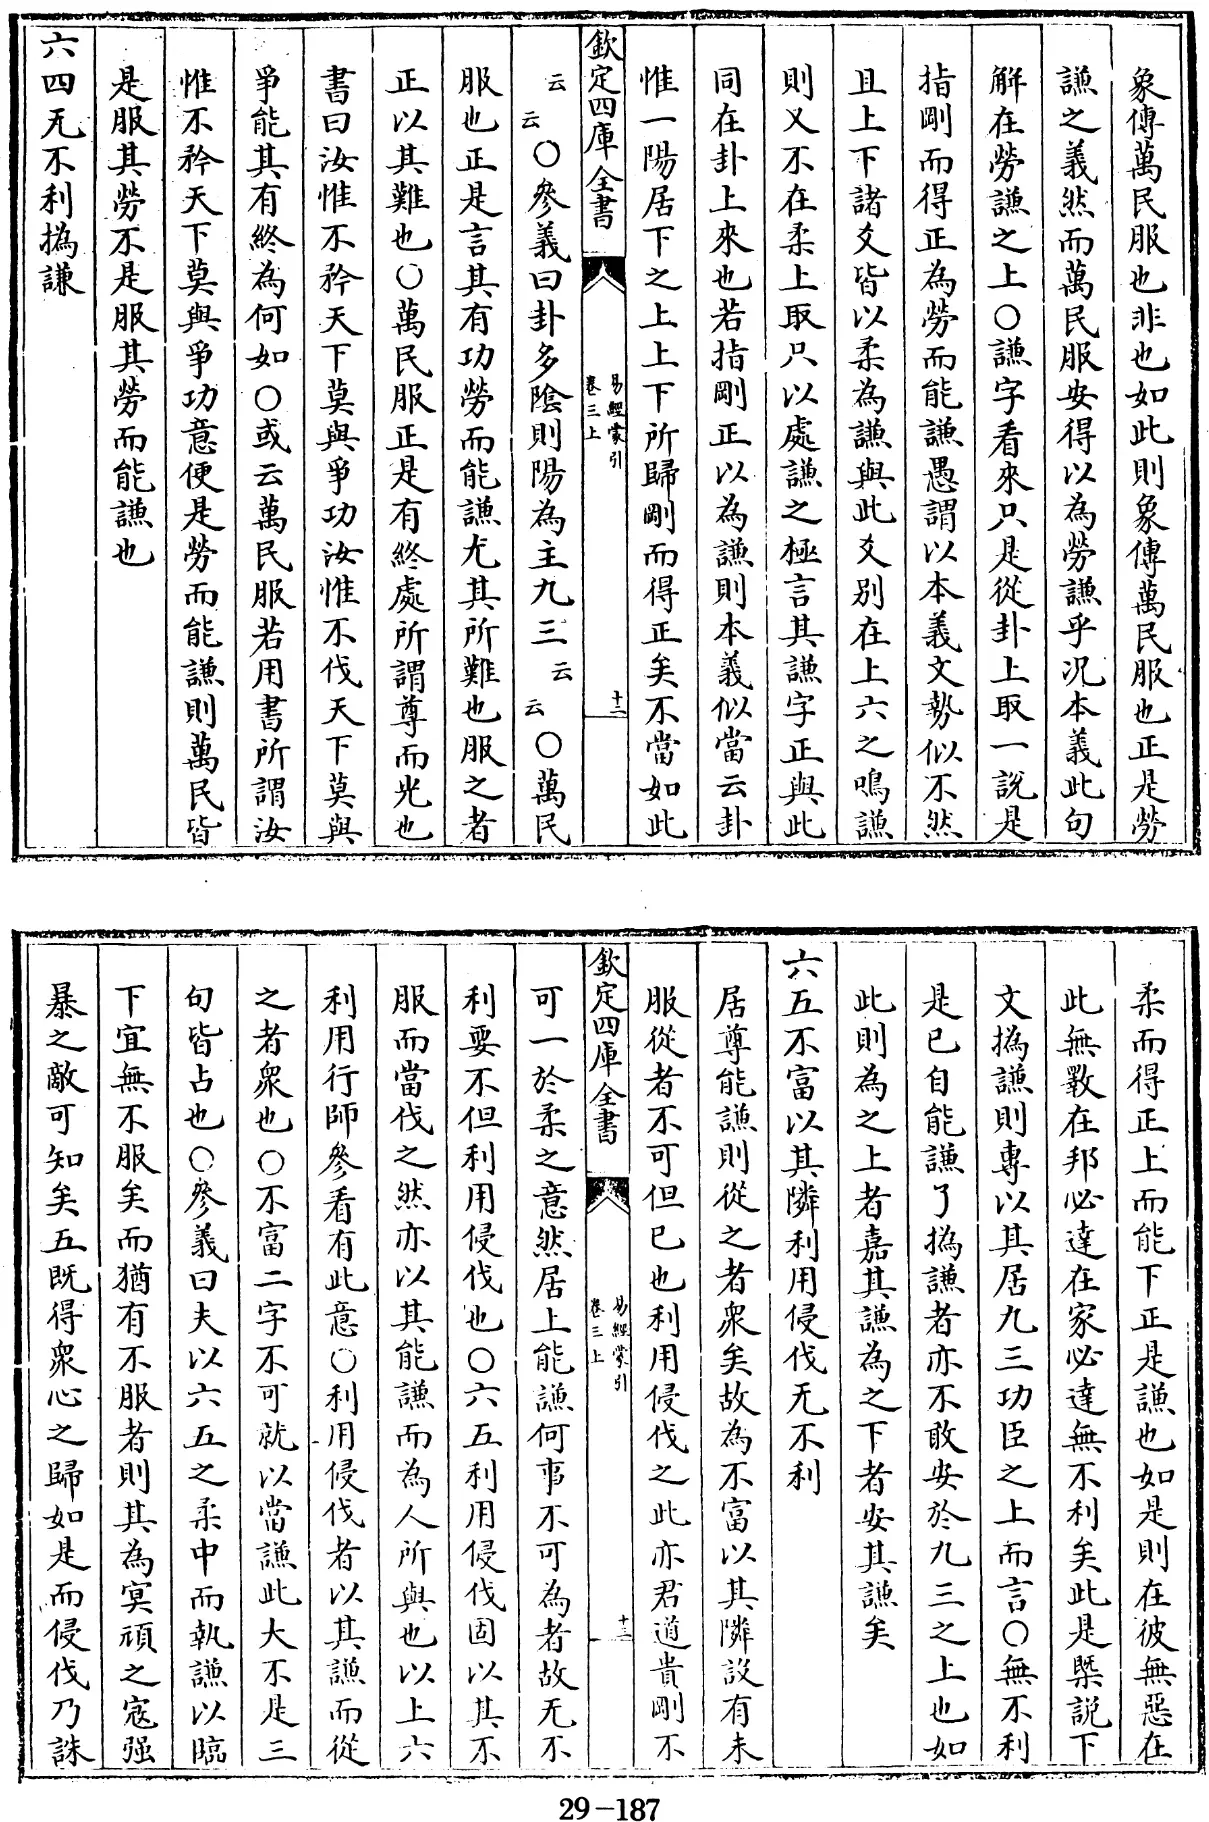 象傳萬民服也非也如此則象傳萬民服也正是勞
謙之義然而萬民服安得以為勞謙乎况本義此句
解在勞謙之上○謙字看來只是從卦上取一説是
指剛而得正為勞而能謙愚謂以本義文勢似不然
且上下諸爻皆以柔為謙與此爻别在上六之鳴謙
則又不在柔上取只以處謙之極言其謙字正與此
同在卦上來也若指剛正以為謙則本義似當云卦
惟一陽居下之上上下所歸剛而得正矣不當如此
欽定四庫全書
易經蒙引
卷三上
十二
云云○參義曰卦多陰則陽為主九三云云○萬民
服也正是言其有功勞而能謙尤其所難也服之者
正以其難也○萬民服正是有終處所謂尊而光也
書曰汝惟不矜天下莫與爭功汝惟不伐天下莫與
爭能其有終為何如○或云萬民服若用書所謂汝
惟不矜天下莫與爭功意便是勞而能謙則萬民皆
是服其勞不是服其勞而能謙也
六四无不利撝謙
柔而得正上而能下正是謙也如是則在彼無惡在
此無斁在邦必達在家必達無不利矣此是槩説下
文撝謙則專以其居九三功臣之上而言○無不利
是已自能謙了撝謙者亦不敢安於九三之上也如
此則為之上者嘉其謙為之下者安其謙矣
六五不富以其隣利用侵伐无不利
居尊能謙則從之者衆矣故為不富以其隣設有未
服從者不可但已也利用侵伐之此亦君道貴剛不
欽定四庫全書
易經蒙引
卷三上
十三
可一於柔之意然居上能謙何事不可為者故无不
利要不但利用侵伐也○六五利用侵伐固以其不
服而當伐之然亦以其能謙而為人所與也以上六
利用行師參看有此意○利用侵伐者以其謙而從
之者衆也○不富二字不可就以當謙此大不是三
句皆占也○參義曰夫以六五之柔中而執謙以臨
下宜無不服矣而猶有不服者則其為冥頑之寇强
暴之敵可知矣五既得衆心之歸如是而侵伐乃誅
29-187